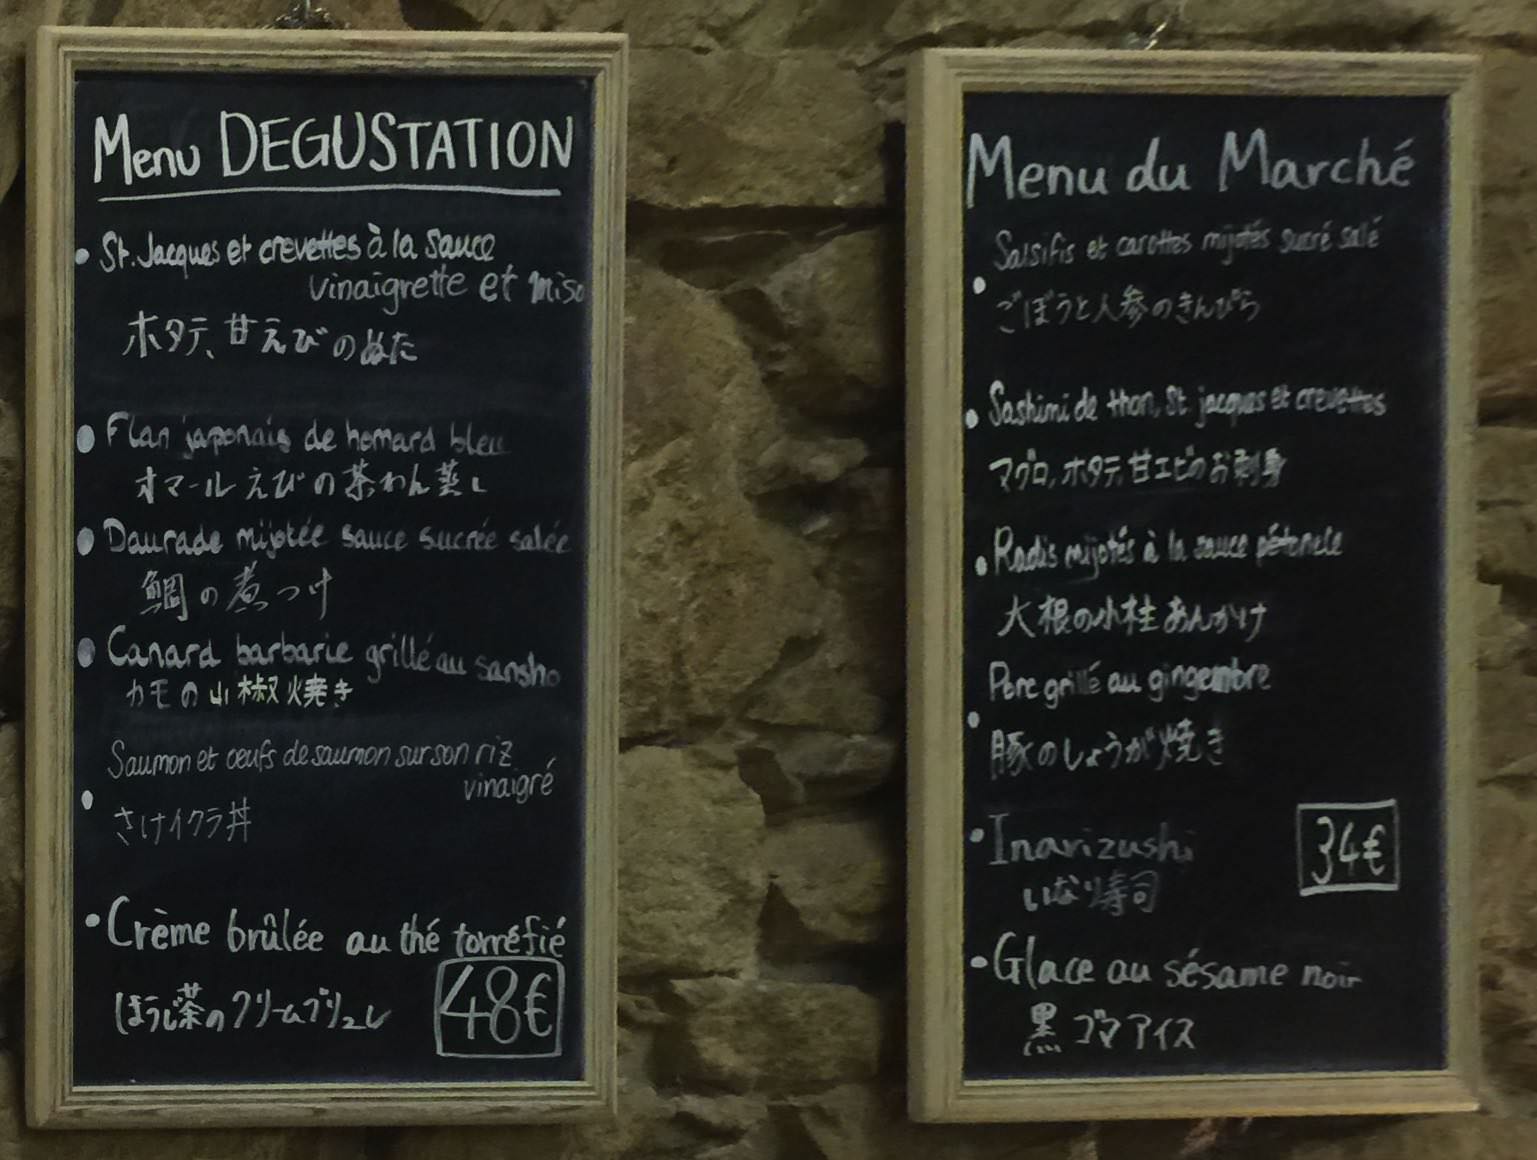 Menu DEGUSTATION
• St. Jacques et crevettes à la sauce
vinaigrette et miso
ホタテ、甘えびのぬた
• Flan japonais de homard bleu
オマールえびの茶わん蒸し
• Daurade mijotée sauce sucrée salée
鯛の煮つけ
• Canard barbarie grillé au sansho
カモの山椒焼き
• Saumon et œufs de saumon sur son riz
vinaigré
さけイクラ丼
• Crème brûlée au thé torréfié
ほうじ茶のクリームブリュレ
48€
Menu du Marché
• Salsifis et carottes mijotés sucré salé
ごぼうと人参のきんぴら
• Sashimi de thon, St jacques et crevettes
マグロ,ホタテ,甘エビのお刺身
• Radis mijotés à la sauce pétoncle
大根の小柱あんかけ
• Porc grillé au gingembre
豚のしょうが焼き
• Inarizushi
いなり寿司
34€
• Glace au sésame noir
黒ゴマアイス